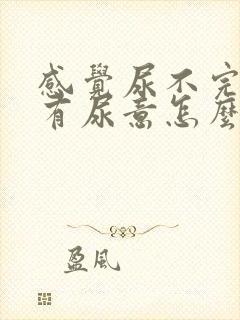 感覺尿不完
有尿意怎麼
盈風